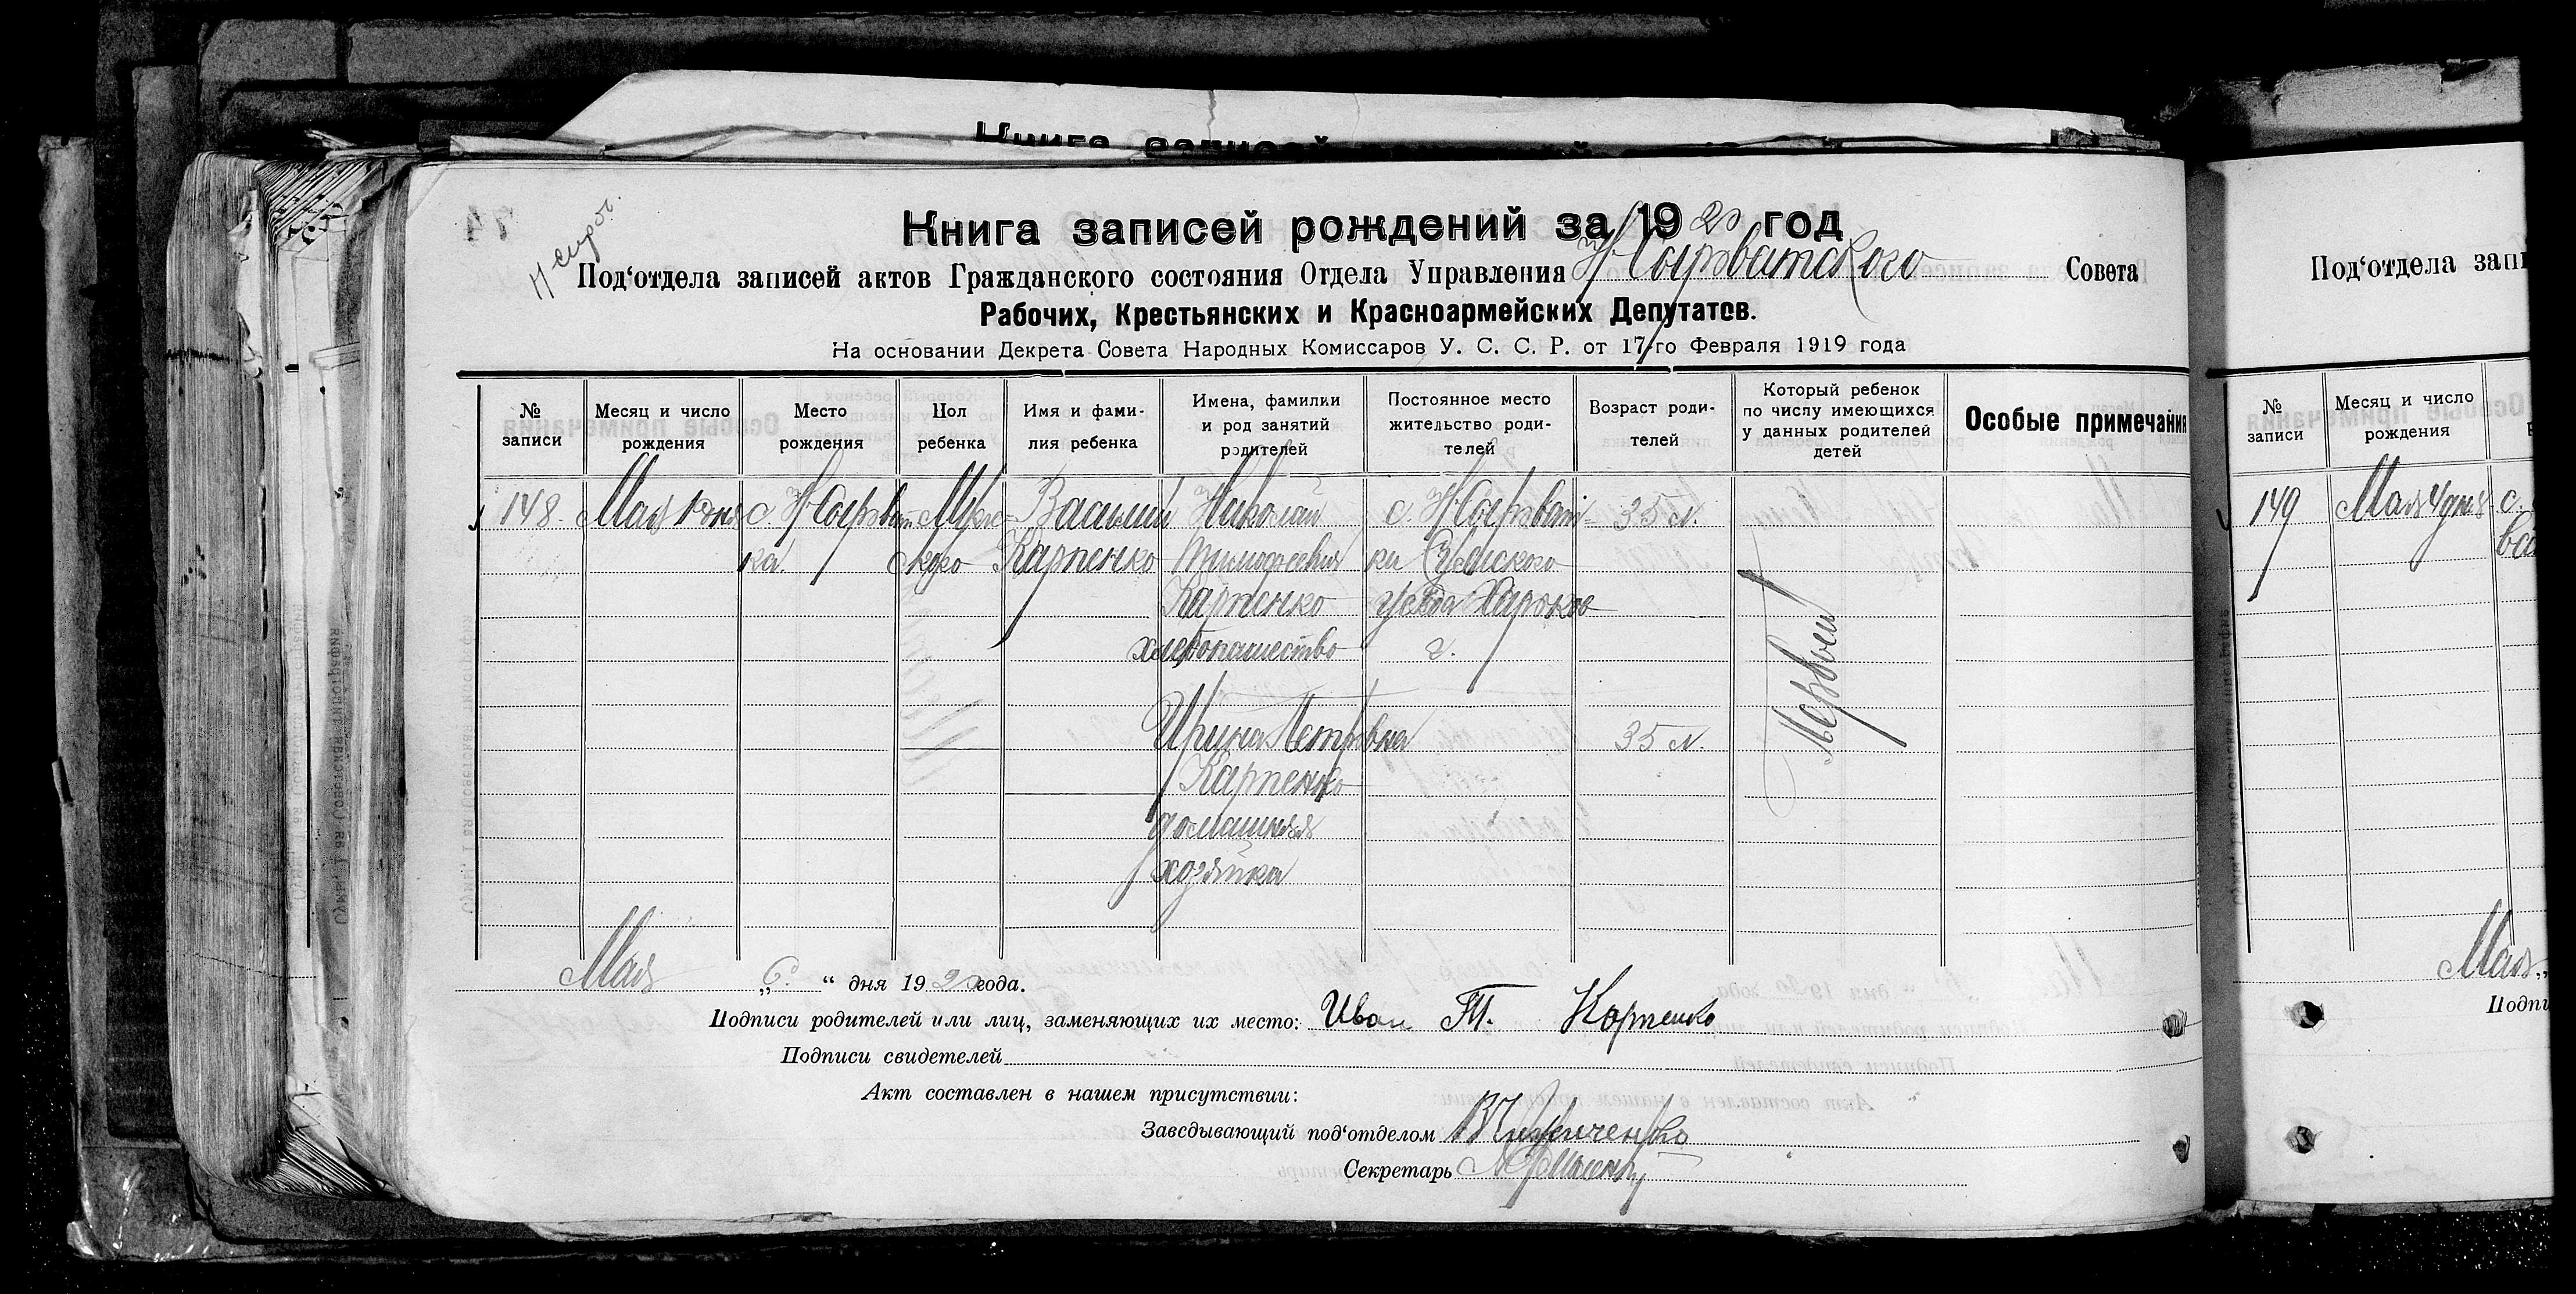 Книга записей
Н Сыров.
Книга записей рождений за 1920 год
Под‘отдела записей актов Гражданского состояния Отдела Управления Н Сыроватского Совета
Рабочих, Крестьянских и Красноармейских Депутатов.
На основании Декрета Совета Народных Комиссаров У. С. С. Р. от 17-го Февраля 1919 года
№ записи
Месяц и число рождения
Место рождения
Пол ребенка
Имя и фамилия ребенка
Имена, фамилии и род занятий родителей
Постоянное место жительство родителей
Возраст родителей
Который ребенок по числу имеющихся у данных родителей детей
Особые примечания
148. Мая 1 дня с. Н Сыроват Муж- Василий Николай с. Н Сыроват- 35 л.
ка. ского Карпенко Тимофеевич ки Сумского
Карпенко уезда Харьков
хлебопашество г.
Первый
Ирина Петровна 35 л.
Карпенко
домашняя
хозяйка
Мая „6.“ дня 1920 года.
Подписи родителей или лиц, заменяющих их место: Иван Т. Карпенко
Подписи свидетелей
Акт составлен в нашем присутствии:
Заведывающий под‘отделом
Секретарь
Под‘отдела запи
№ записи
Месяц и число рождения
149 Мая 4 дня с.
Мая „
Подпи